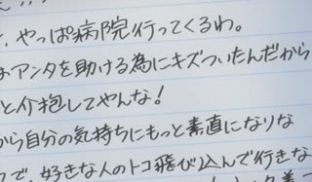 、やっぱ病院行ってくるわ。
アンタを助ける為にキズついたんだから
と介抱してやんな!
から自分の気持ちにもっと素直になりな
で、好きな人のトコ飛び込んで行きな